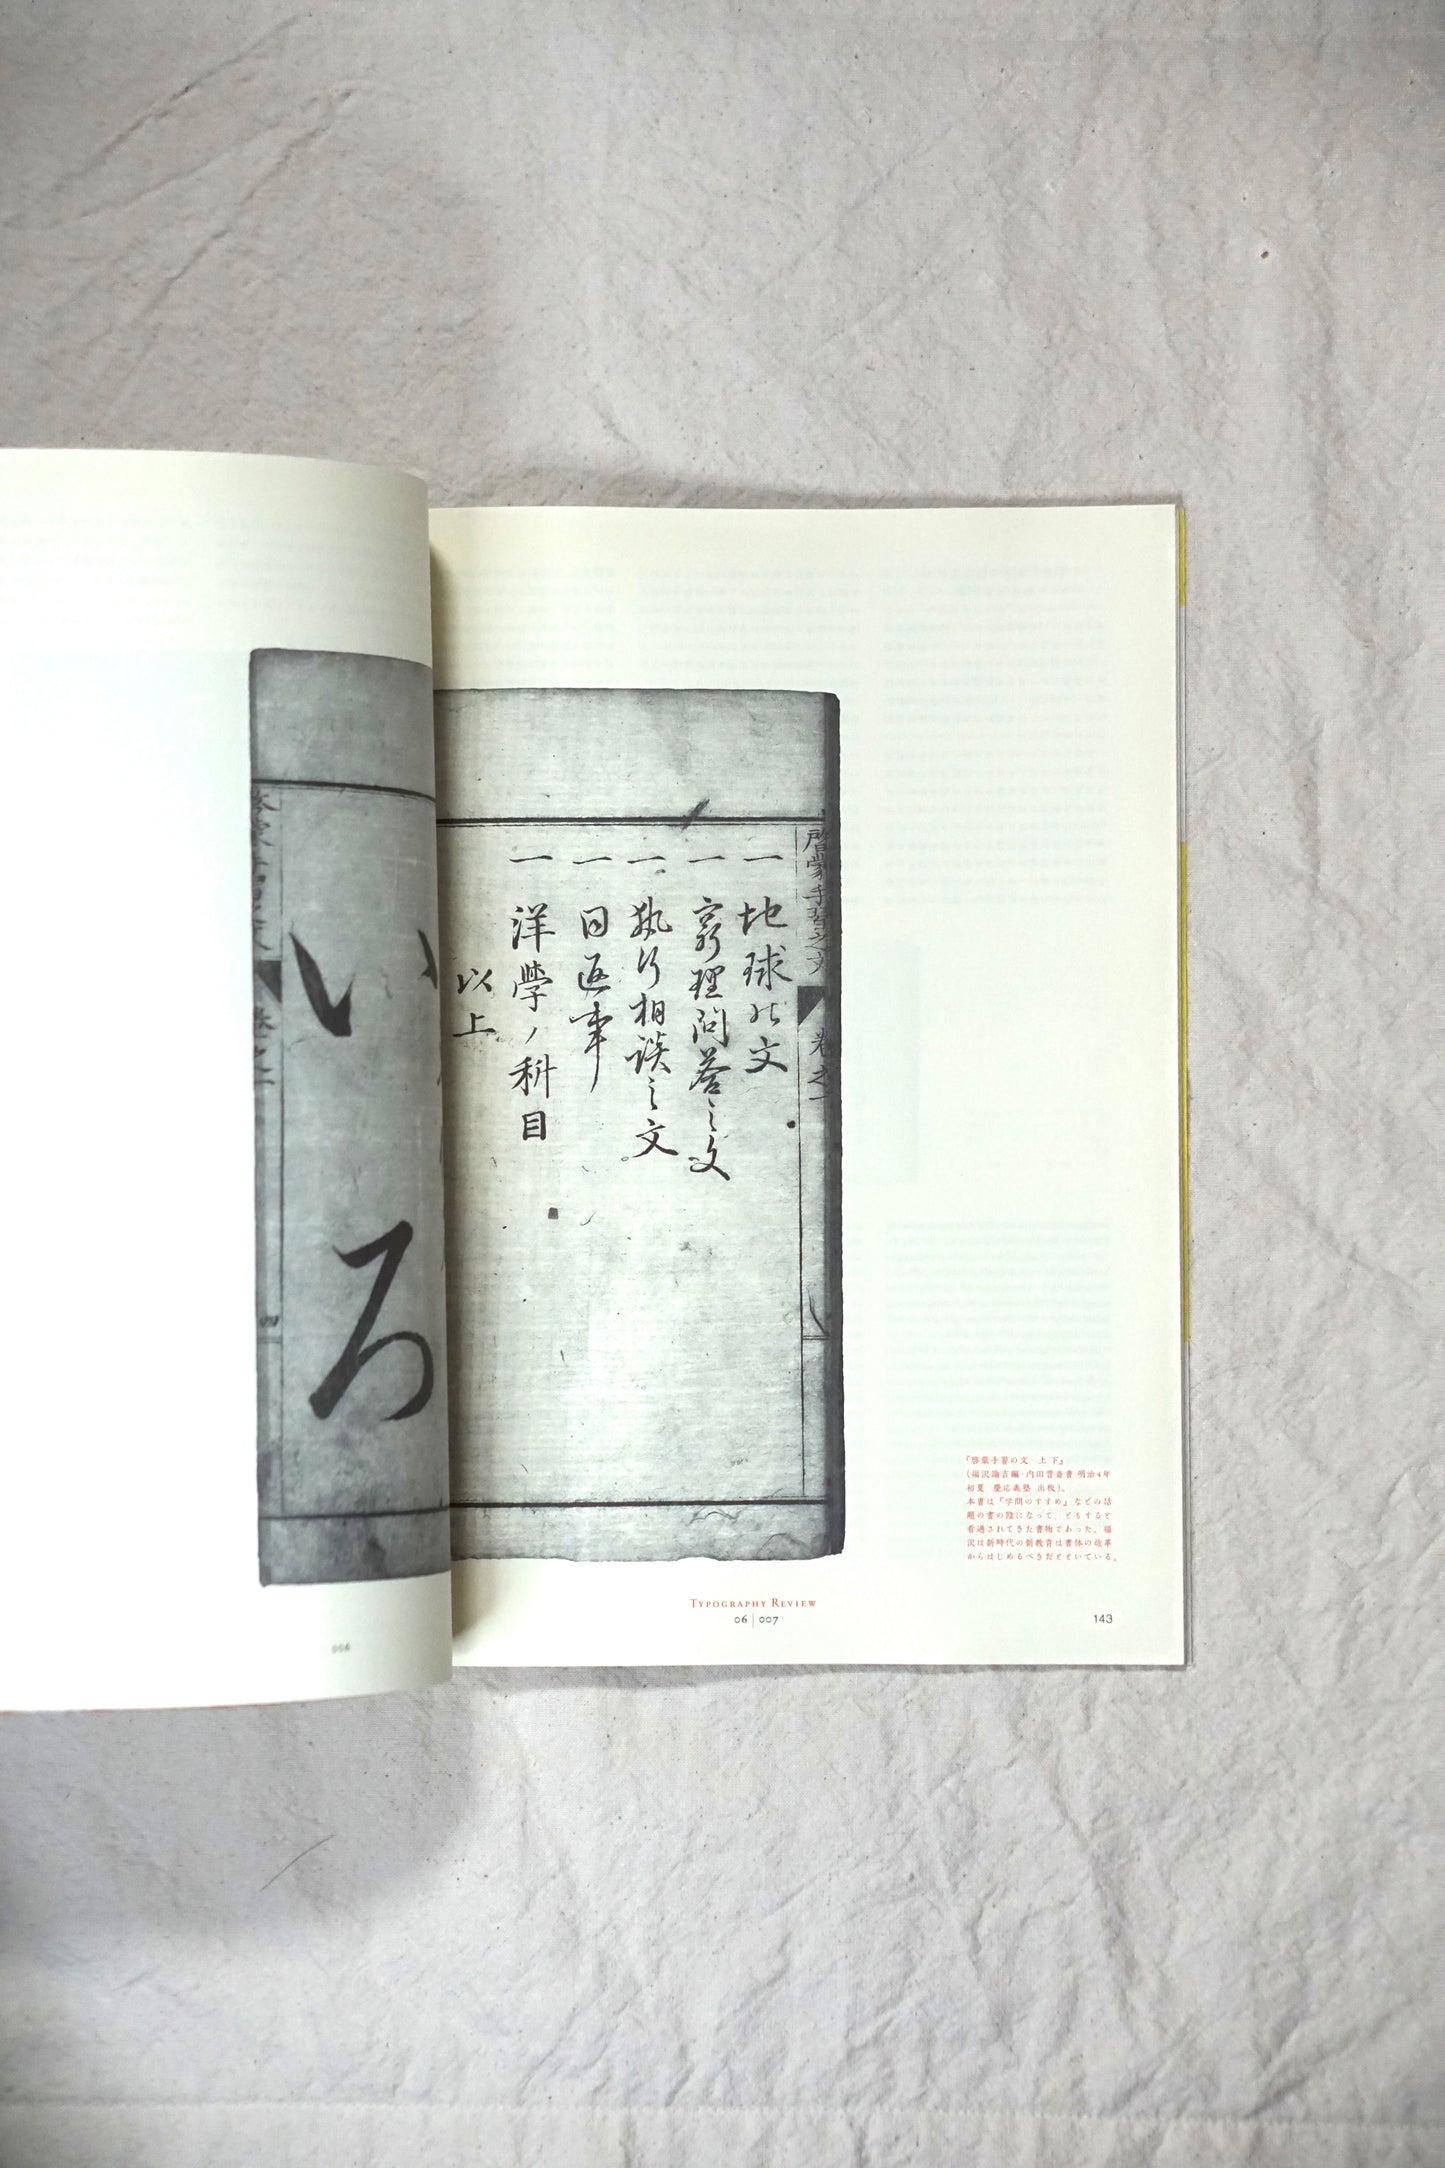 一 地球の文
一 窮理問答之文
一 執行相談之文
一 同返事
一 洋學ノ科目
以上
啓蒙手習之文
卷之一
い
ろ
『啓蒙手習の文 上下』
(福沢諭吉編・内田晋斎書 明治4年
初夏 慶応義塾 出板)。
本書は『学問のすすめ』などの話
題の書の陰になって、ともすると
看過されてきた書物であった。福
沢は新時代の新教育は書体の改革
からはじめるべきだといている。
TYPOGRAPHY REVIEW
06 | 007
143
006